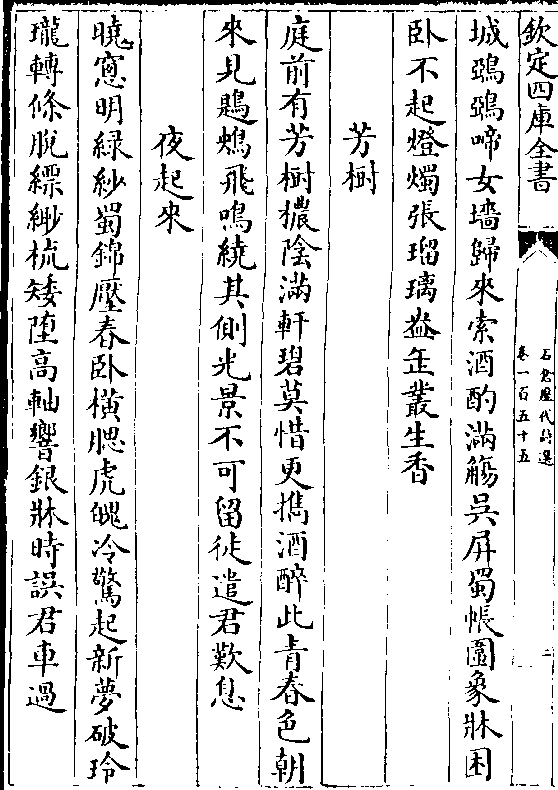 欽定四庫全書
石倉歷代詩選
卷一百五十五
二
城鵶鵶啼女墻歸來索酒酌滿觴吳屏蜀帳圖象牀困
卧不起燈燭張瑠璃㼜缶叢生香
芳樹
庭前有芳樹穠陰滿軒碧莫惜更攜酒醉此青春色朝
來見鶗鴂飛鳴繞其側光景不可留徒遣君歎息
夜起來
曉窻明綠紗蜀錦壓春卧橫腮虎魄冷驚起新夢破玲
瓏轉條脫縹緲梳矮墮高軸響銀牀時誤君車過